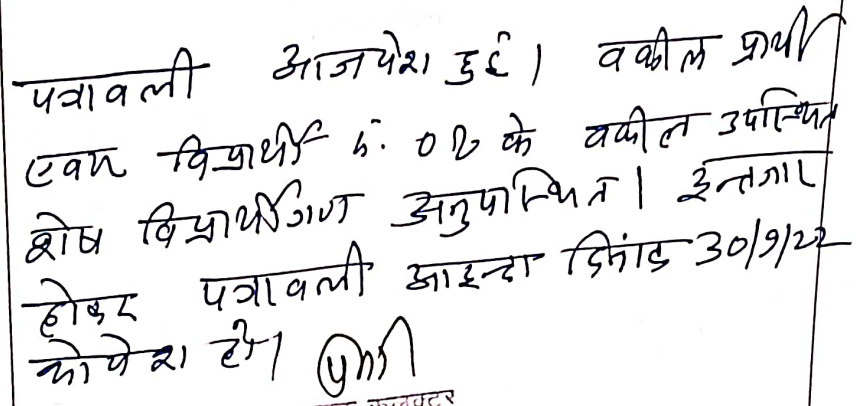 पत्रावली आज पेश हुई। वकील प्रार्थी
एवम विप्रार्थी सं. 02 के वकील उपस्थित
शेष विप्रार्थीगण अनुपस्थित। इन्तजार
होकर पत्रावली आइन्दा दिनांक 30/9/22
को पेश हो।
कलक्टर